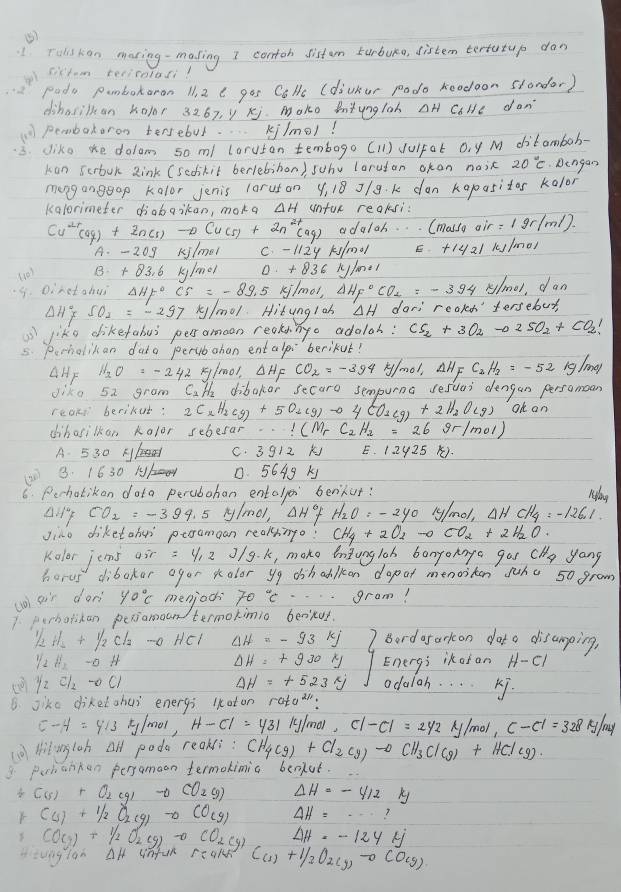 (5)
1. Tuliskan masing-masing 1 contoh sistem terbuka, sistem tertutup dan
sistem terisolasi!
2. pada pembakaran 11,2 l gas C6H6 (diukur pada keadaan standar)
dihasilkan kalor 3267,4 kj. Maka hitunglah ΔH C6H6 dari
(10) pembakaran tersebut .... kj/mol!
3. Jika ke dalam 50 ml larutan tembaga (II) sulfat 0,4 M ditambah-
kan serbuk zink (sedikit berlebihan), suhu larutan akan naik 20°C. Dengan
menganggap kalor jenis larutan 4,18 J/g.k dan kapasitas kalor
kalorimeter diabaikan, maka ΔH untuk reaksi:
Cu2+(aq) + Zn(s) → Cu(s) + Zn2+(aq) adalah... (massa air = 1 gr/ml).
A. -209 kj/mol C. -1124 kj/mol E. +1421 kj/mol
(10) B. +83,6 kj/mol D. +836 kj/mol
4. Diketahui ΔHf° CS = -89,5 kj/mol, ΔHf° CO2 = -394 kj/mol, dan
ΔH°f SO2 = -297 kj/mol. Hitunglah ΔH dari reaksi tersebut,
jika diketahui persamaan reaksinya adalah: CS2 + 3O2 → 2SO2 + CO2!
5. Perhatikan data perubahan entalpi berikut!
ΔHF H2O = -242 kj/mol, ΔHF CO2 = -394 kj/mol, ΔHF C2H2 = -52 kj/mol
Jika 52 gram C2H2 dibakar secara sempurna sesuai dengan persamaan
reaksi berikut: 2C2H2(g) + 5O2(g) → 4CO2(g) + 2H2O(g) akan
dihasilkan kalor sebesar ...! (Mr C2H2 = 26 gr/mol)
A. 530 kj C. 3912 kJ E. 12425 kj.
B. 1630 kj D. 5649 kj
(20)
6. Perhatikan data perubahan entalpi berikut:
ΔH°f CO2 = -394,5 kj/mol, ΔH°f H2O = -240 kj/mol, ΔH CH4 = -126,1.
Jika diketahui persamaan reaksinya: CH4 + 2O2 → CO2 + 2H2O.
Kalor jenis air = 4,2 J/g.k, maka hitunglah banyaknya gas CH4 yang
harus dibakar agar kalor yg dihasilkan dapat menaikan suhu 50 gram
(10) air dari 40°c menjadi 70°c .... gram!
7. perhatikan persamaan termokimia berikut.
1/2 H2 + 1/2 Cl2 → HCl ΔH = -93 kj } Berdasarkan data disamping,
1/2 H2 → H ΔH = +930 kj Energi ikatan H-Cl
1/2 Cl2 → Cl ΔH = +523 kj adalah .... kj.
8. Jika diketahui energi ikatan rata2:
C-H = 413 kj/mol, H-Cl = 431 kj/mol, Cl-Cl = 242 kj/mol, C-Cl = 328 kj/mol
(10) Hitunglah ΔH pada reaksi: CH4(g) + Cl2(g) → CH3Cl(g) + HCl(g).
9. Perhatikan persamaan termokimia berikut.
C(s) + O2(g) → CO2(g) ΔH = -412 kj
C(s) + 1/2 O2(g) → CO(g) ΔH = ...?
CO(g) + 1/2 O2(g) → CO2(g) ΔH = -124 kj
Hitunglah ΔH untuk reaksi C(s) + 1/2 O2(g) → CO(g).